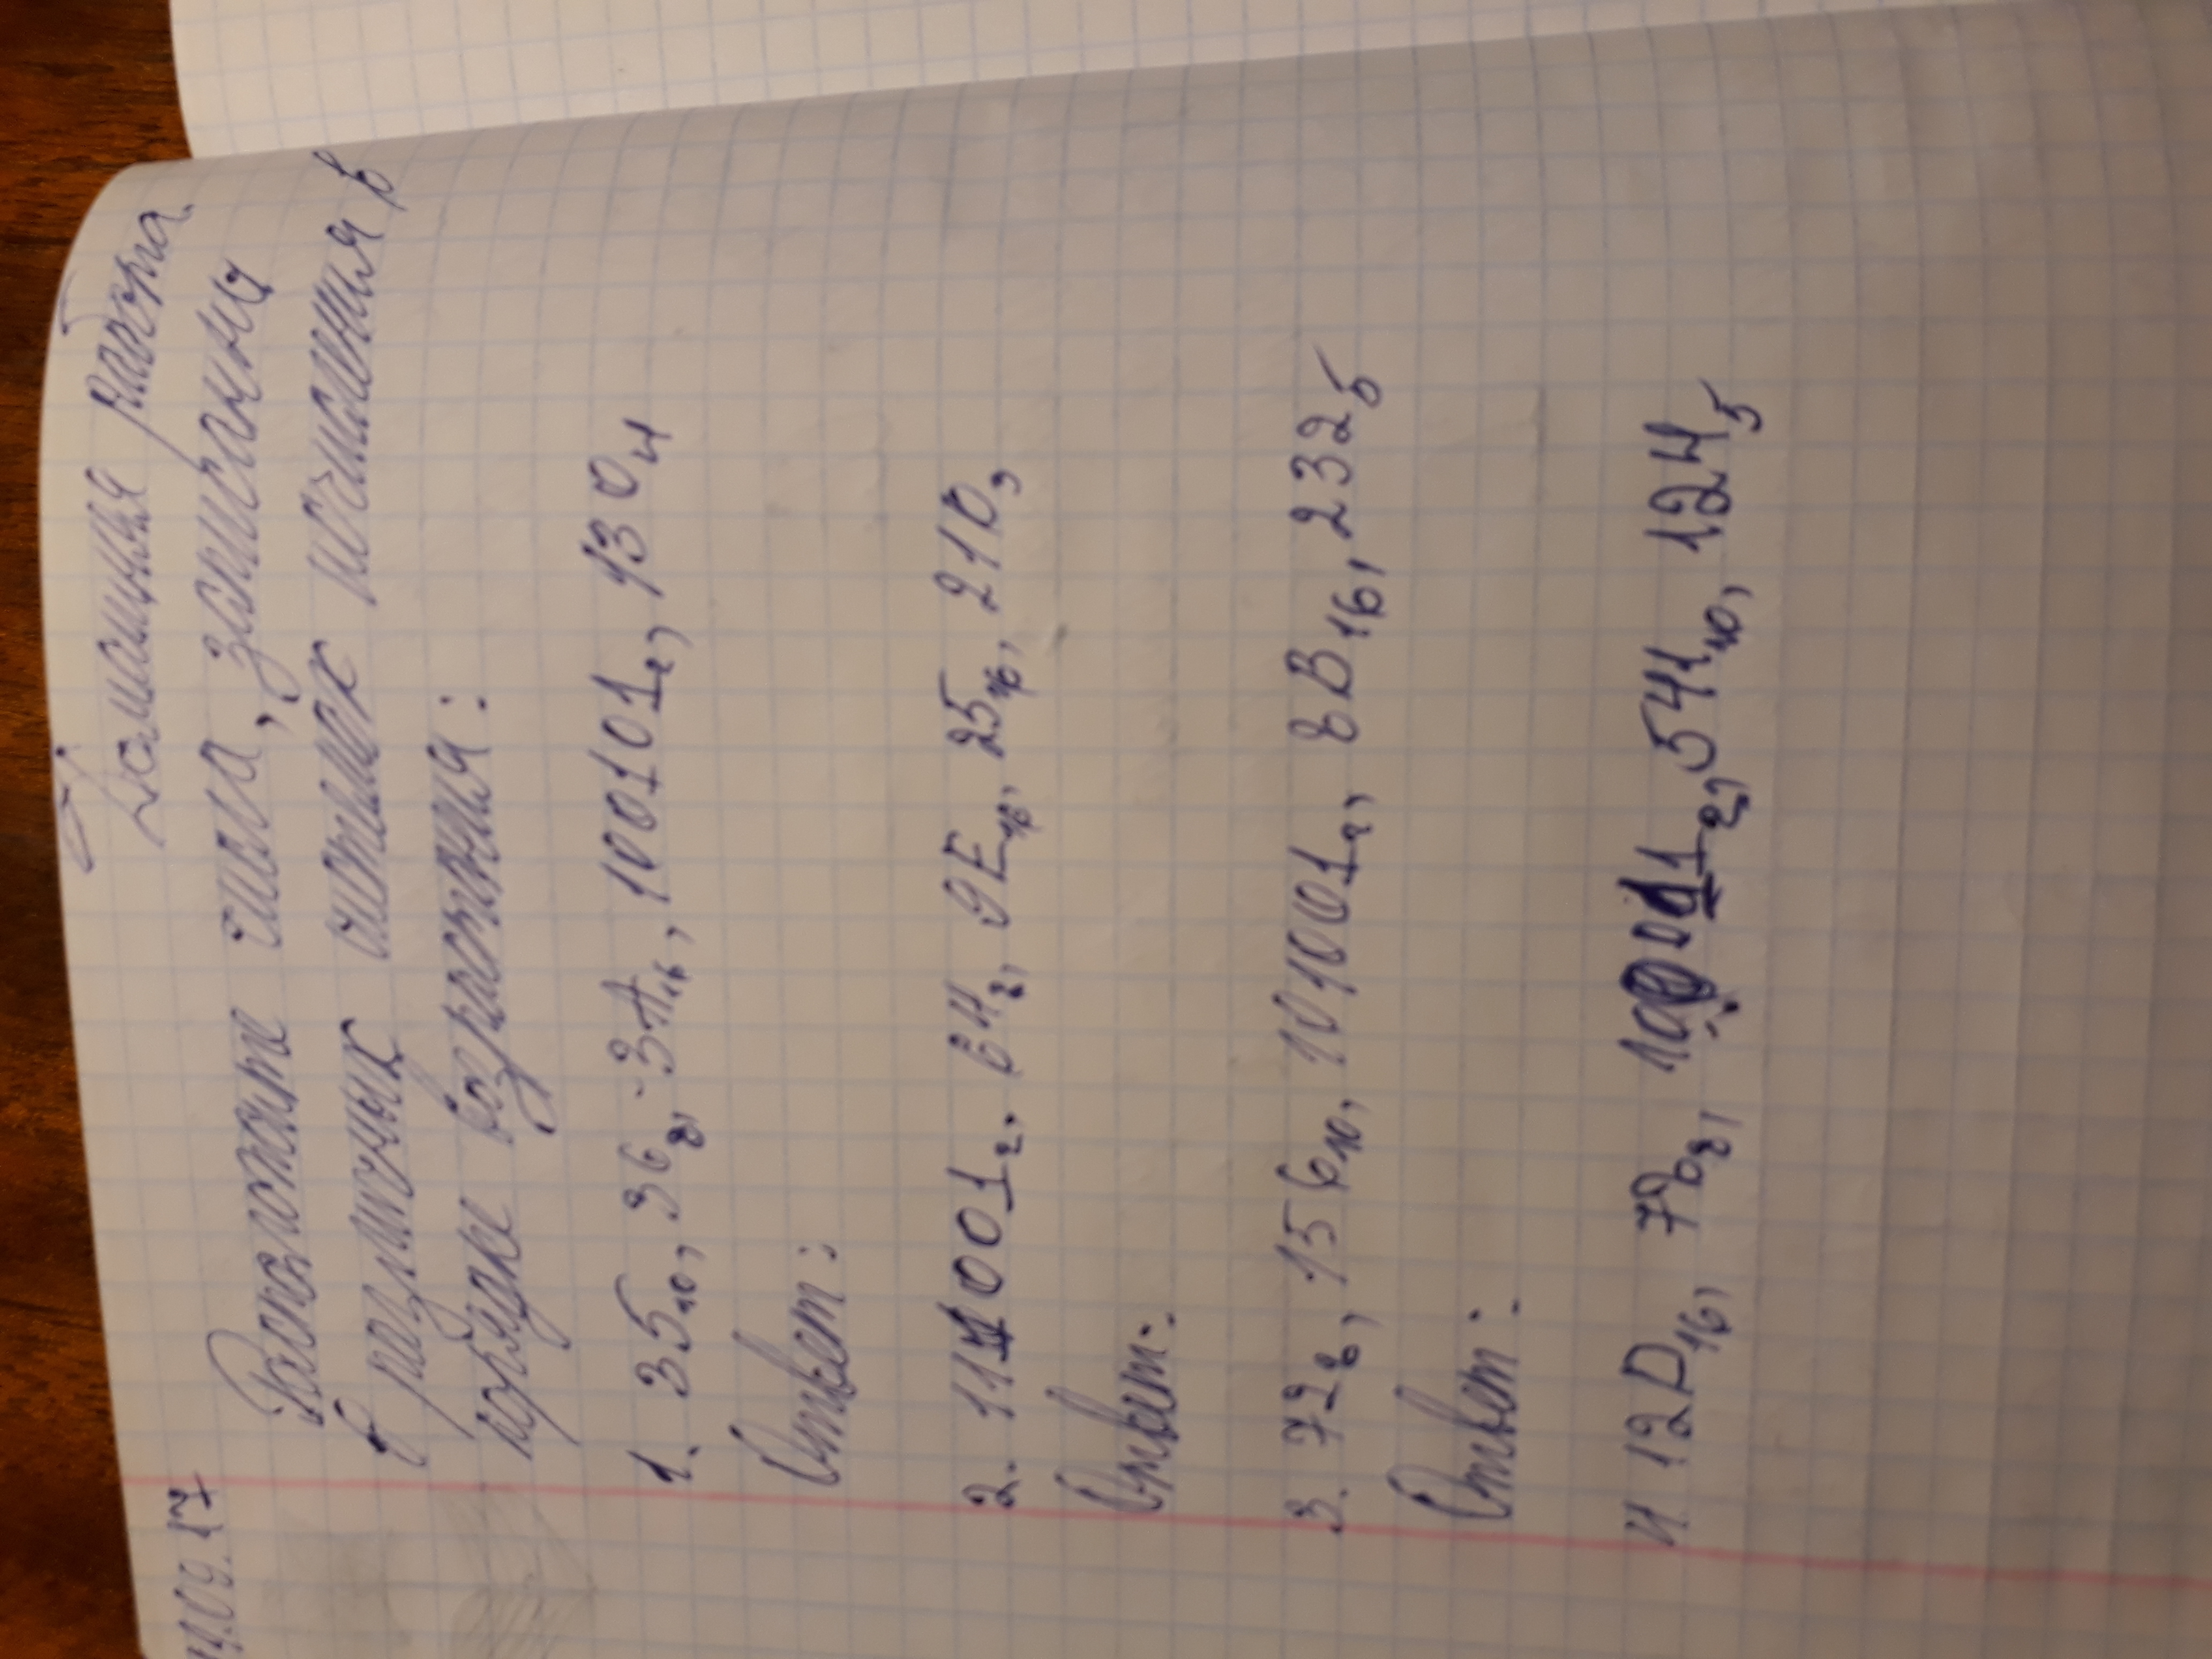 14.09.17
Домашняя работа.
Расположите числа, записанны
в различных системах исчисления в
порядке возрастания:
1. 35₁₀, 36₈, 3A₁₆, 100101₂, 130₄
Ответ:
2. 111001₂, 64₈, 9E₁₆, 25₁₆, 210₃
Ответ:
3. 72₈, 156₁₀, 101001₂, 8B₁₆, 232₅
Ответ:
4 12D₁₆, 76₈, 541₁₀, 124₅